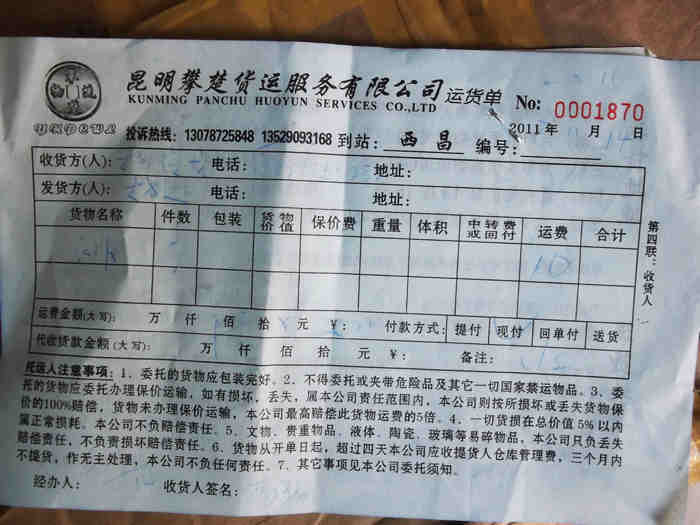 昆明攀楚货运服务有限公司 运货单 No: 0001870
KUNMING PANCHU HUOYUN SERVICES CO.,LTD
2011年 月 日
投诉热线: 13078725848 13529093168 到站: 西昌 编号:
收货方(人): 电话: 地址:
发货方(人): 电话: 地址:
货物名称 件数 包装 货物价值 保价费 重量 体积 中转费或回付 运费 合计
10
第四联:收货人
运费金额(大写): 万 仟 佰 拾 元 ¥: 付款方式: 提付 现付 回单付 送货
代收货款金额(大写): 万 仟 佰 拾 元 ¥: 备注:
托运人注意事项:1、委托的货物应包装完好。2、不得委托或夹带危险品及其它一切国家禁运物品。3、委
托的货物应委托办理保价运输,如有损坏,丢失,属本公司责任范围内,本公司则按所损坏或丢失货物保
价的100%赔偿,货物未办理保价运输,本公司最高赔偿此货物运费的5倍。4、一切货损在总价值5%以内
属正常损耗。本公司不负赔偿责任。5、文物、贵重物品、液体、陶瓷、玻璃等易碎物品,本公司只负丢失
赔偿责任,不负责损坏赔偿责任。6、货物从开单日起,超过四天本公司应收提货人仓库管理费,三个月内
不提货,作无主处理,本公司不负任何责任。7、其它事项见本公司委托须知。
经办人: 收货人签名: